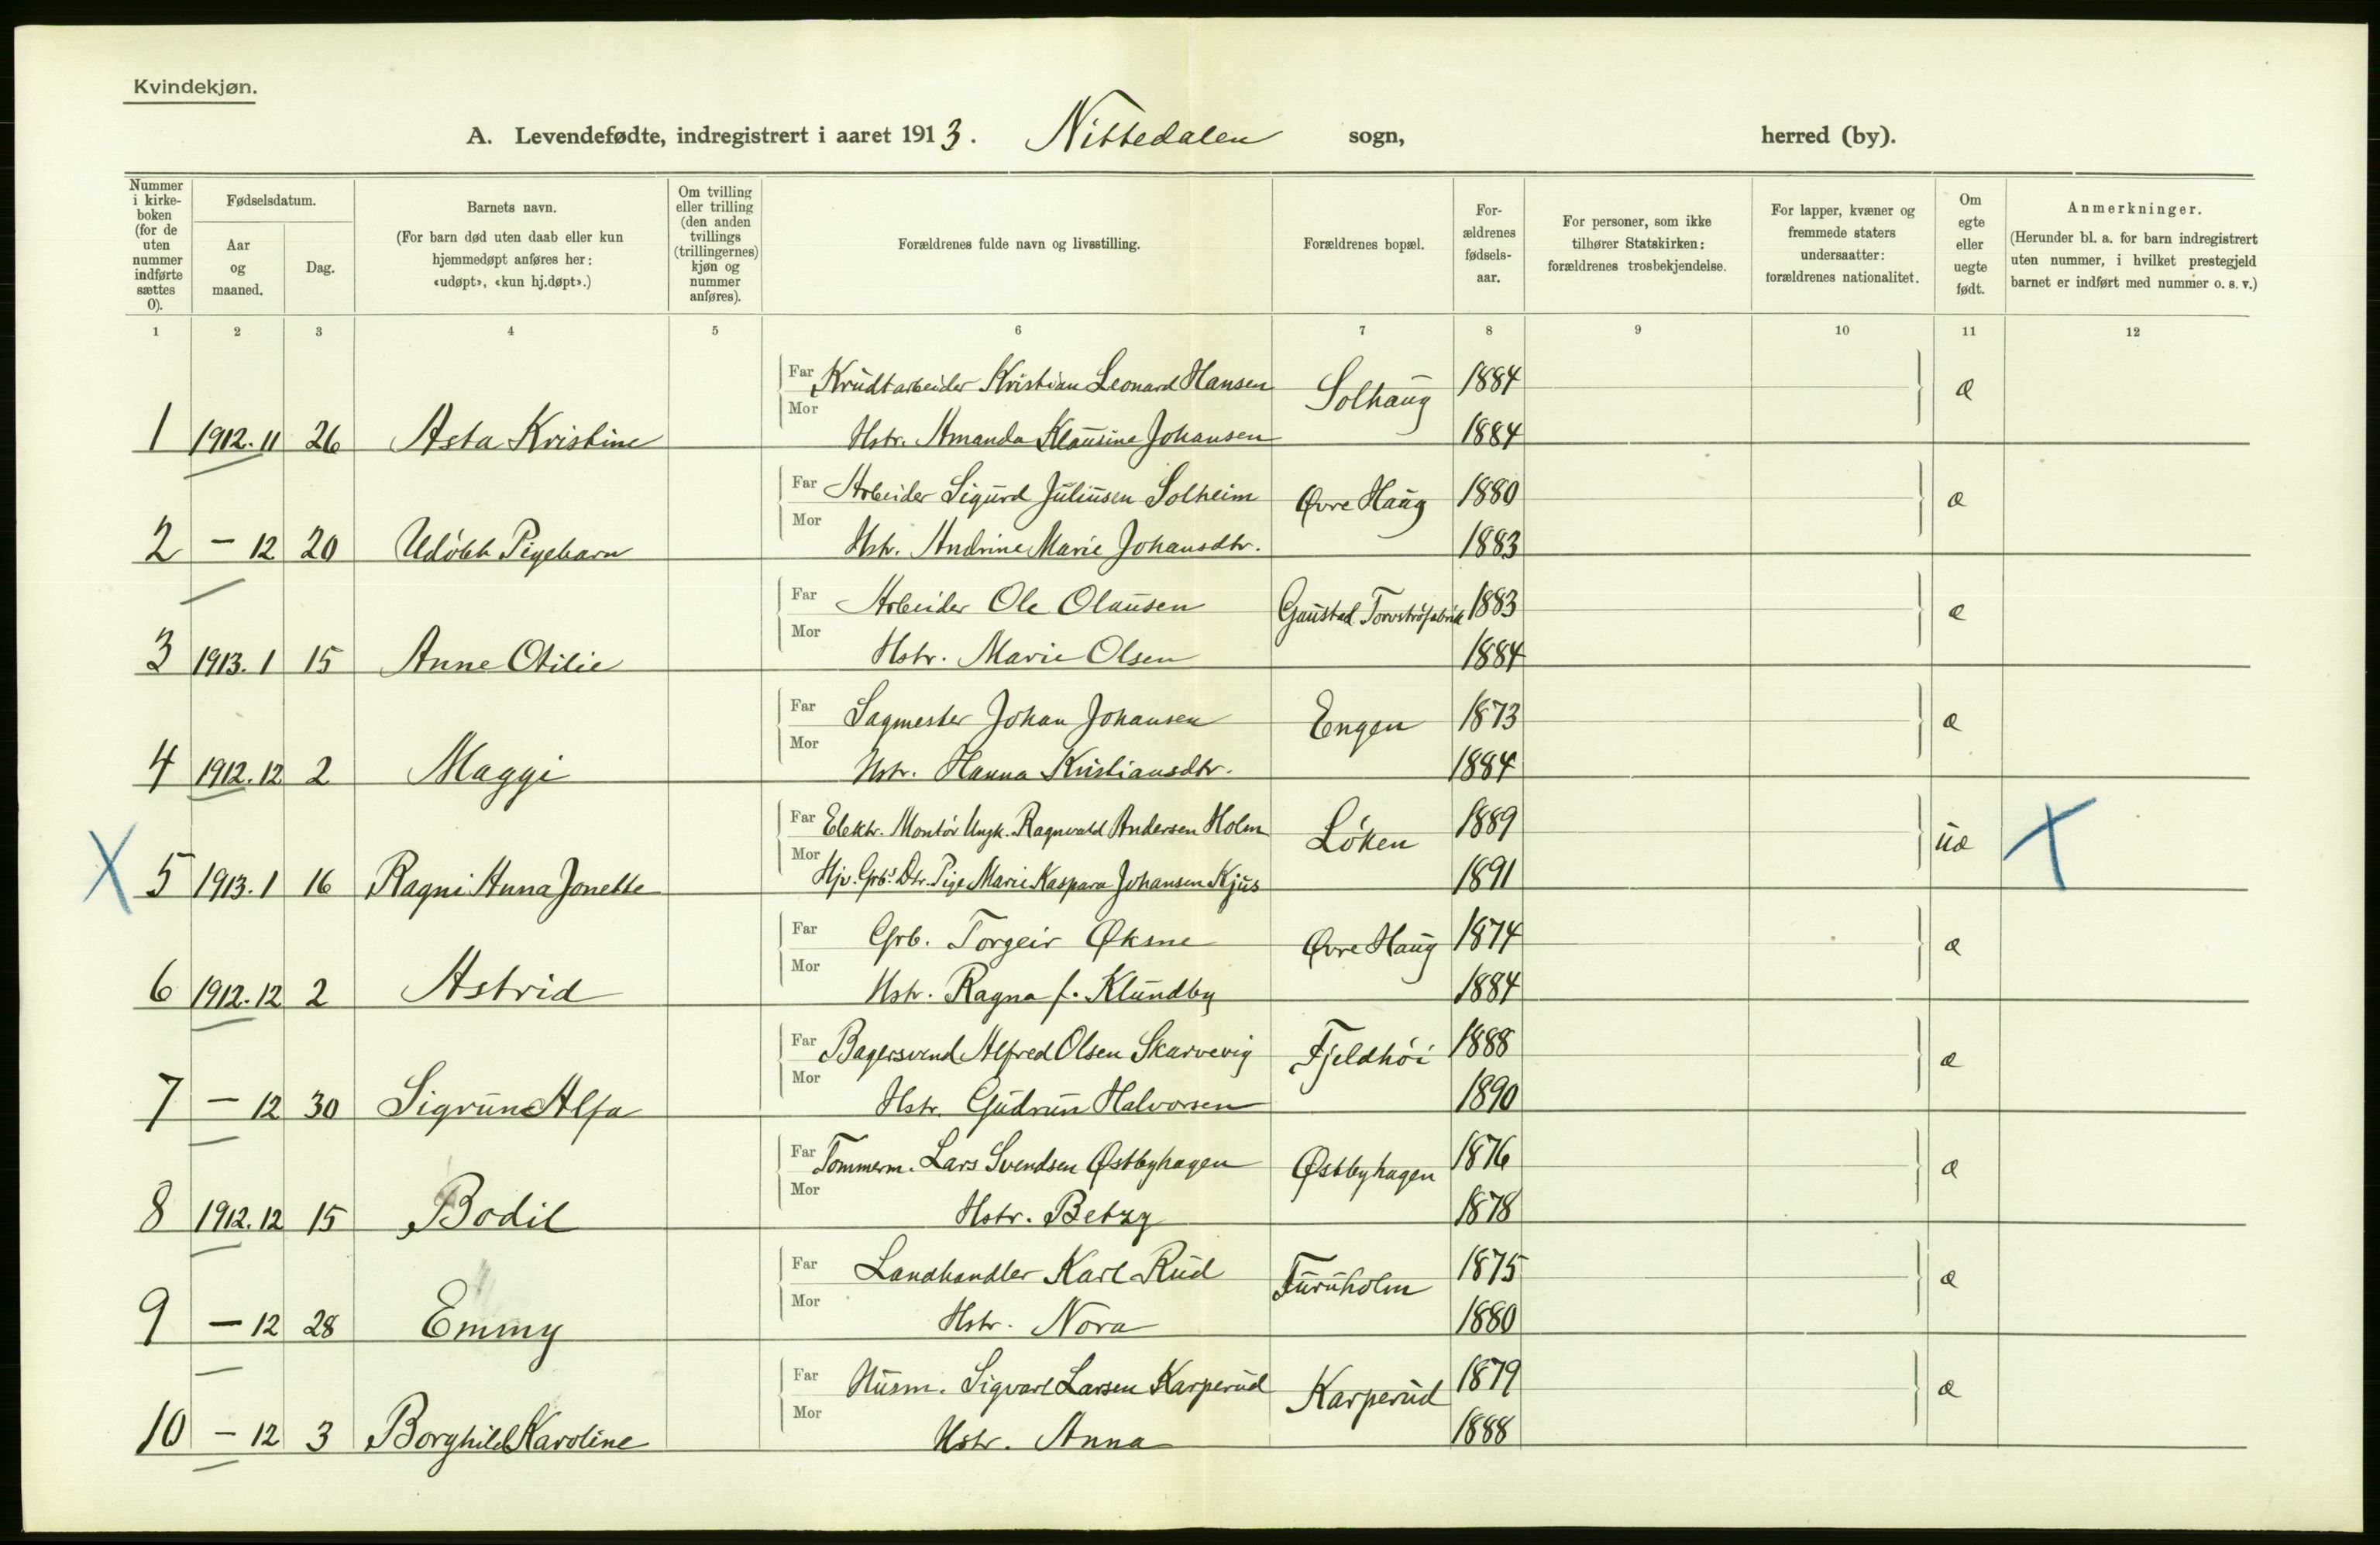 Kvindekjøn.
A. Levendefødte, indregistrert i aaret 1913. Nittedalen sogn, herred (by).
Nummer i kirkeboken (for de uten nummer indførte sættes 0).
Fødselsdatum.
Aar og maaned.
Dag.
Barnets navn. (For barn død uten daab eller kun hjemmedøpt anføres her: «udøpt», «kun hj.døpt».)
Om tvilling eller trilling (den anden tvillings (trillingernes) kjøn og nummer anføres).
Forældrenes fulde navn og livsstilling.
Forældrenes bopæl.
Forældrenes fødselsaar.
For personer, som ikke tilhører Statskirken: forældrenes trosbekjendelse.
For lapper, kvæner og fremmede staters undersaatter: forældrenes nationalitet.
Om egte eller uegte født.
Anmerkninger. (Herunder bl. a. for barn indregistrert uten nummer, i hvilket prestegjeld barnet er indført med nummer o. s. v.)
1 2 3 4 5 6 7 8 9 10 11 12
Far Krudtarbeider Kristian Leonard Hansen Solhaug 1884 æ
1 1912.11 26 Asta Kristine Mor Hstr. Amanda Klausine Johansen 1884
Far Arbeider Sigurd Juliusen Solheim Øvre Haug 1880 æ
2 – 12 20 Udöbt Pigebarn Mor Hstr. Andrine Marie Johansdtr. 1883
Far Arbeider Ole Olausen Gaustad Torvströfabrik 1883 æ
3 1913.1 15 Anne Otilie Mor Hstr. Marie Olsen 1884
Far Sagmester Johan Johansen Engen 1873 æ
4 1912.12 2 Maggi Mor Hstr. Hanna Kristiansdtr. 1884
Far Elektr. Montör Ungk. Ragnvald Andersen Holm Löken 1889 uæ X
X 5 1913.1 16 Ragni Anna Jonette Mor Hjv. Grbs Dtr. Pige Marie Kaspara Johansen Kjus 1891
Far Grb. Torgeir Øksne Øvre Haug 1874 æ
6 1912.12 2 Astrid Mor Hstr. Ragna f. Klundby 1884
Far Bagersvend Alfred Olsen Skarvevig Fjeldhöi 1888 æ
7 – 12 30 Sigrun Alfa Mor Hstr. Gudrun Halvorsen 1890
Far Tommerm. Lars Svendsen Østbyhagen Østbyhagen 1876 æ
8 1912.12 15 Bodil Mor Hstr. Betzy 1878
Far Landhandler Karl Rud Furuholm 1875 æ
9 – 12 28 Emmy Mor Hstr. Nora 1880
Far Husm. Sigvart Larsen Karperud Karperud 1879 æ
10 – 12 3 Borghild Karoline Mor Hstr. Anna 1888